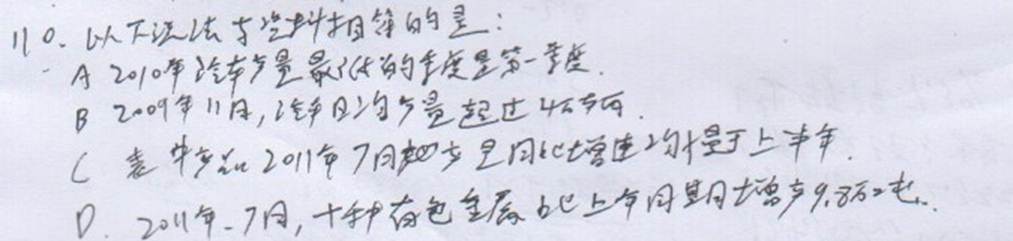 110. 以下说法与资料相符的是:
A 2010年汽车产量最低的季度是第一季度.
B 2009年11月,汽车日均产量超过4万辆.
C 表中产品2011年7月的产量同比增速均慢于上半年.
D. 2011年.7月,十种有色金属比上年同期增产9.8万吨.